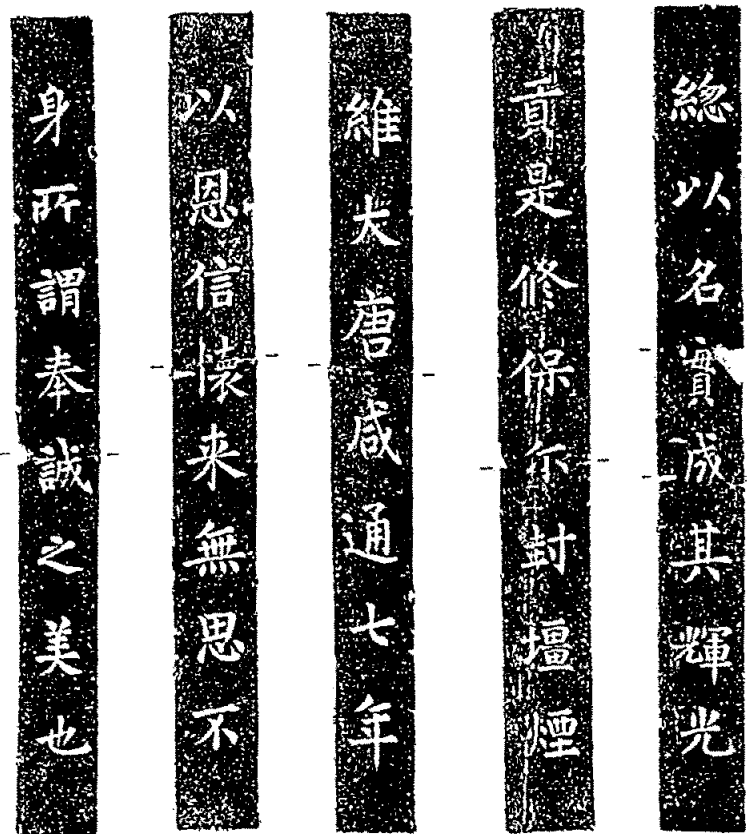 緫以名實成其輝光
貢是修保尓封壃煙
維大唐咸通七年
以恩信懐来無思不
身所謂奉誠之美也